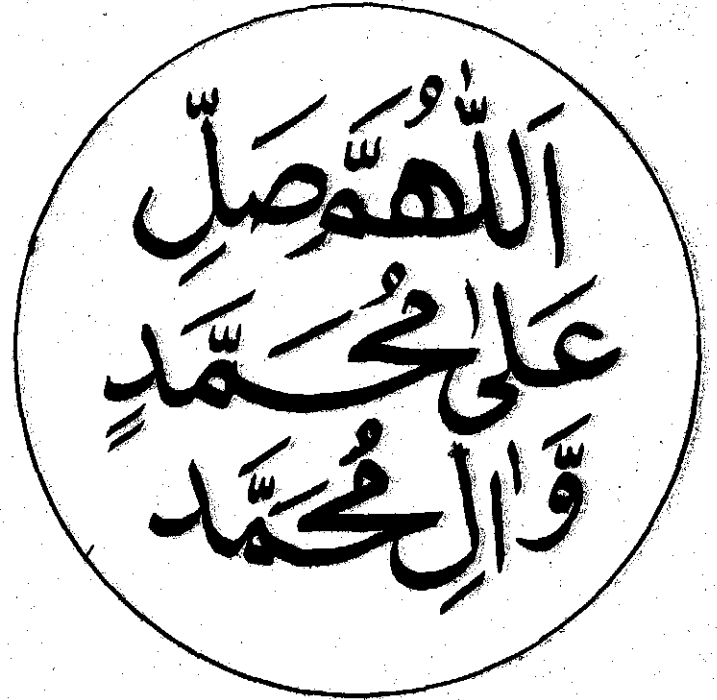 اَللّٰهُمَّ صَلِّ
عَلٰی مُحَمَّدٍ
وَّاٰلِ مُحَمَّد